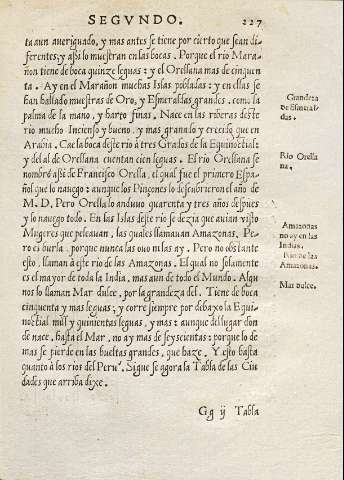 SEGVNDO. 227
ta aun aueriguado, y mas antes se tiene por cierto que sean di-
ferentes; y assi lo muestran en las bocas. Porque el rio Mara-
ñon tiene de boca quinze leguas: y el Orellana mas de cinquen
ta. Ay en el Marañon muchas Islas pobladas: y en ellas se
han hallado muestras de Oro, y Esmeraldas grandes, como la
palma de la mano, y harto finas. Nace en las riberas deste
rio mucho Incienso y bueno, y mas granado y crecido que en
Arabia. Cae la boca deste rio à tres Grados de la Equinoctial:
y del al de Orellana cuentan cien leguas. El rio Orellana se
nombrò assi de Francisco Orella, el qual fue el primero Espa-
ñol que lo nauego: aunque los Pinçones lo descubrieron el año de
M. D. Pero Orella lo anduuo quarenta y tres años despues
y lo nauego todo. En las Islas deste rio se dezia que auian visto
Mugeres que peleauan, las quales llamauan Amazonas. Pe-
ro es burla, porque nunca las ouo ni las ay. Pero no obstante
esto, llaman à este rio de las Amazonas. El qual no solamente
es el mayor de toda la India, mas aun de todo el Mundo. Algu
nos lo llaman Mar dulce, por la grandeza del. Tiene de boca
cinquenta y mas leguas; y corre siempre por debaxo la Equi-
noctial mill y quinientas leguas, y mas: aunque del lugar don
de nace, hasta el Mar, no ay mas de seyscientas: porque lo de
mas se pierde en las bueltas grandes, que haze. Y esto basta
quanto à los rios del Peru. Sigue se agora la Tabla de las Ciu
dades que arriba dixe.
Gg ij Tabla
Grandeza
de Esmeral-
das.
Rio Orella
na.
Amazonas
no ay en las
Indias.
Rio de las
Amazonas.
Mar dulce.